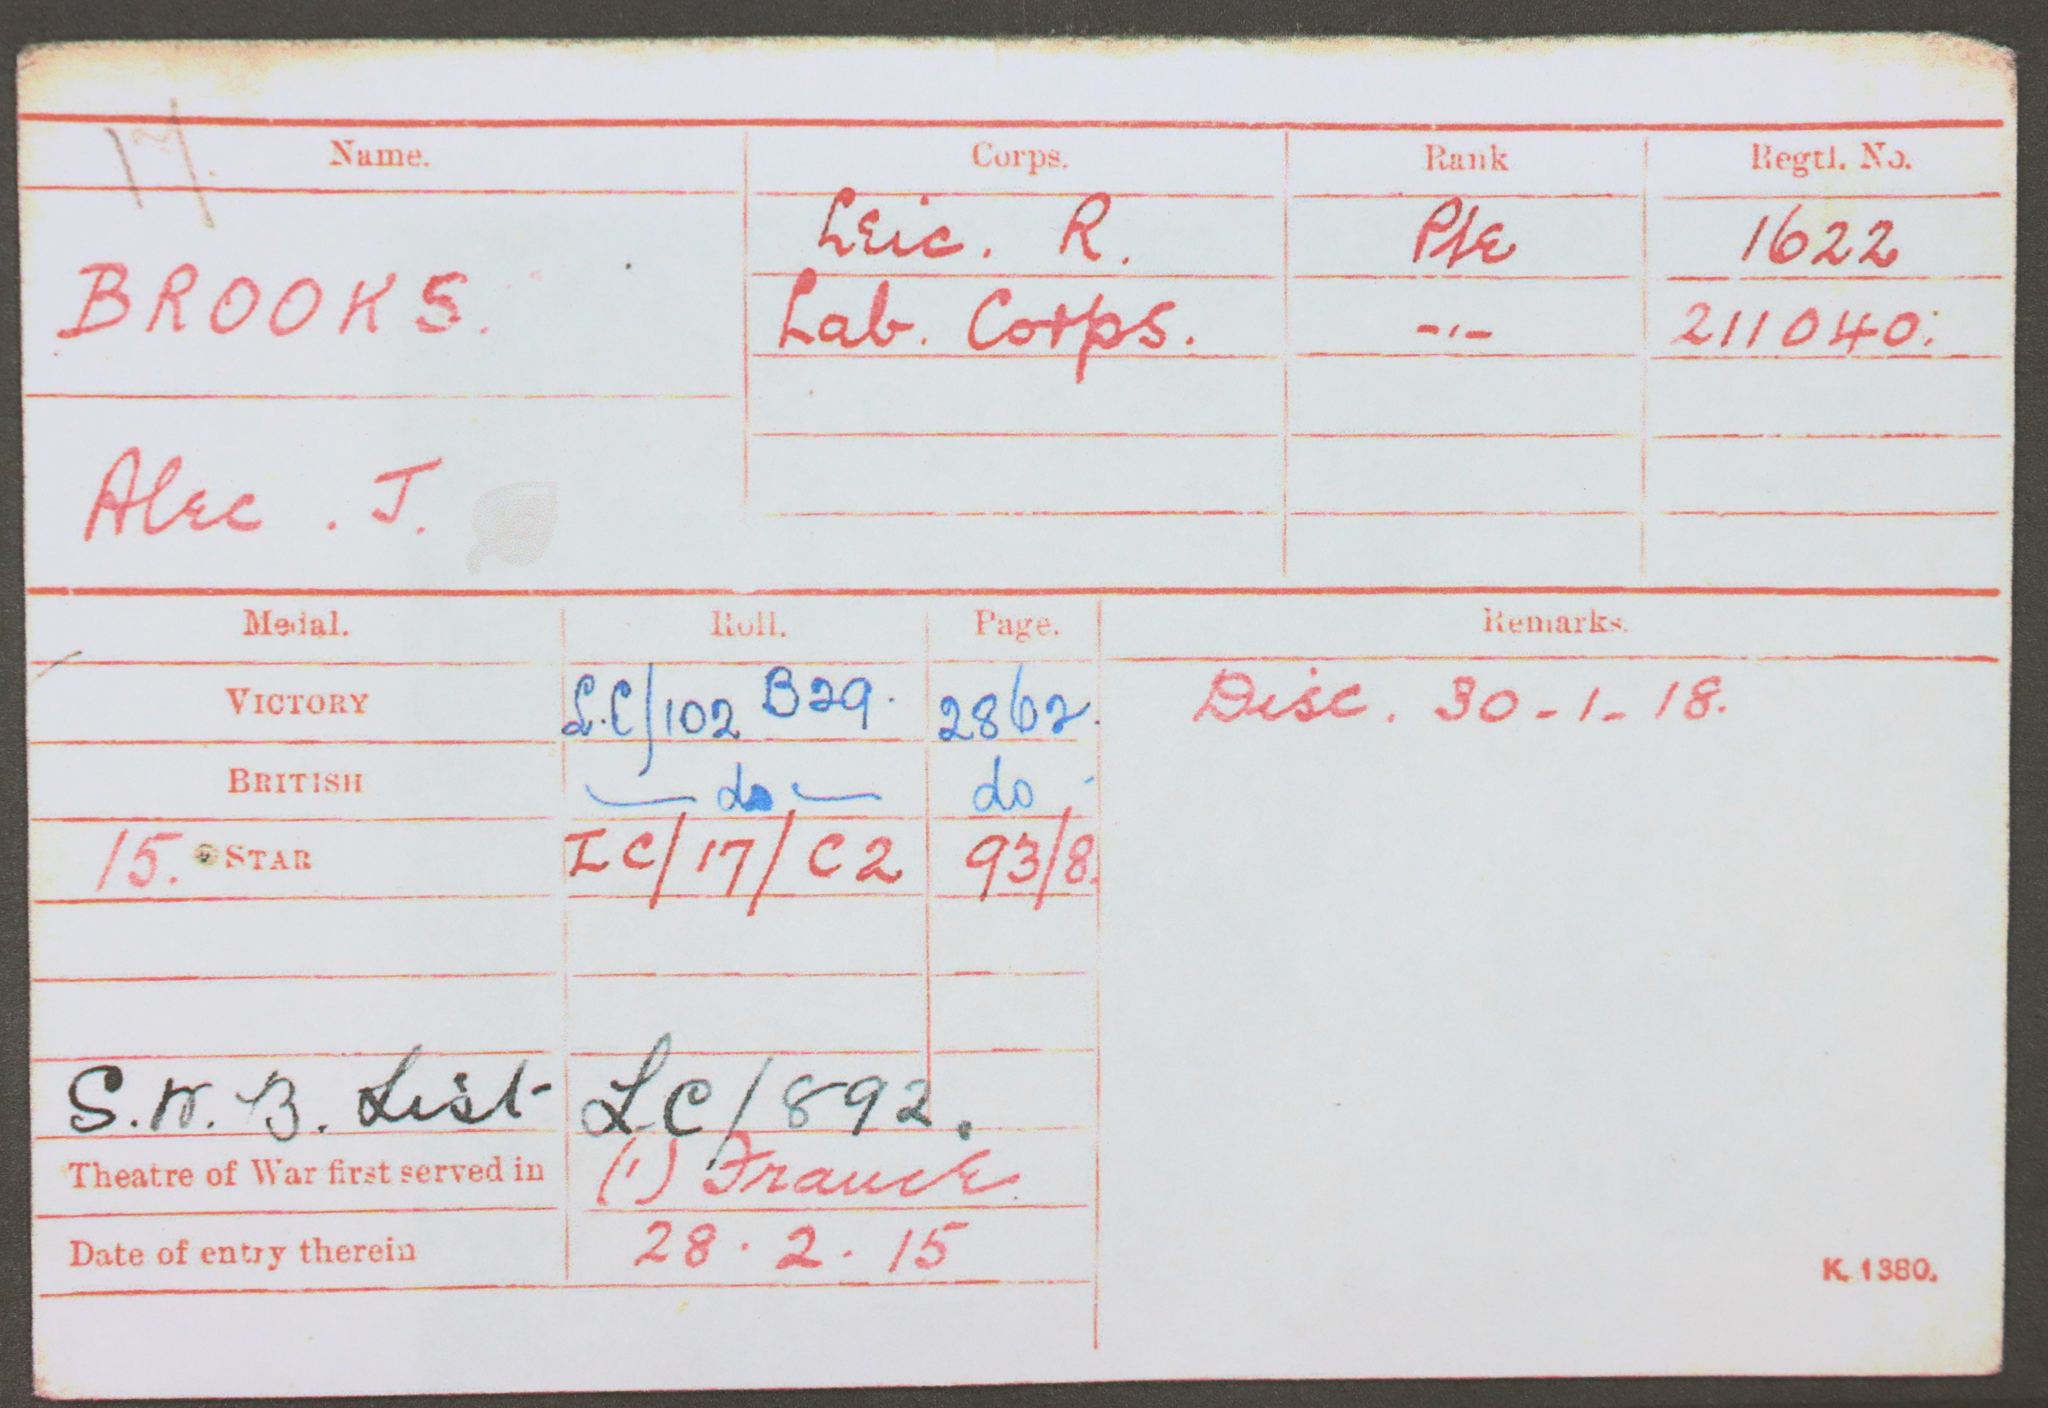 Name. Corps. Rank Regtl. No.
BROOKS. Leic. R. Pte 1622
Lab. Corps. -"- 211040.
Alec. J.
Medal. Roll. Page. Remarks.
VICTORY L.C/102 B29. 2862. Disc. 30-1-18.
BRITISH — do — do
15. STAR LC/17/C2 93/8.
S.W.B. List LC/892.
Theatre of War first served in (1) France
Date of entry therein 28.2.15
K. 1380.